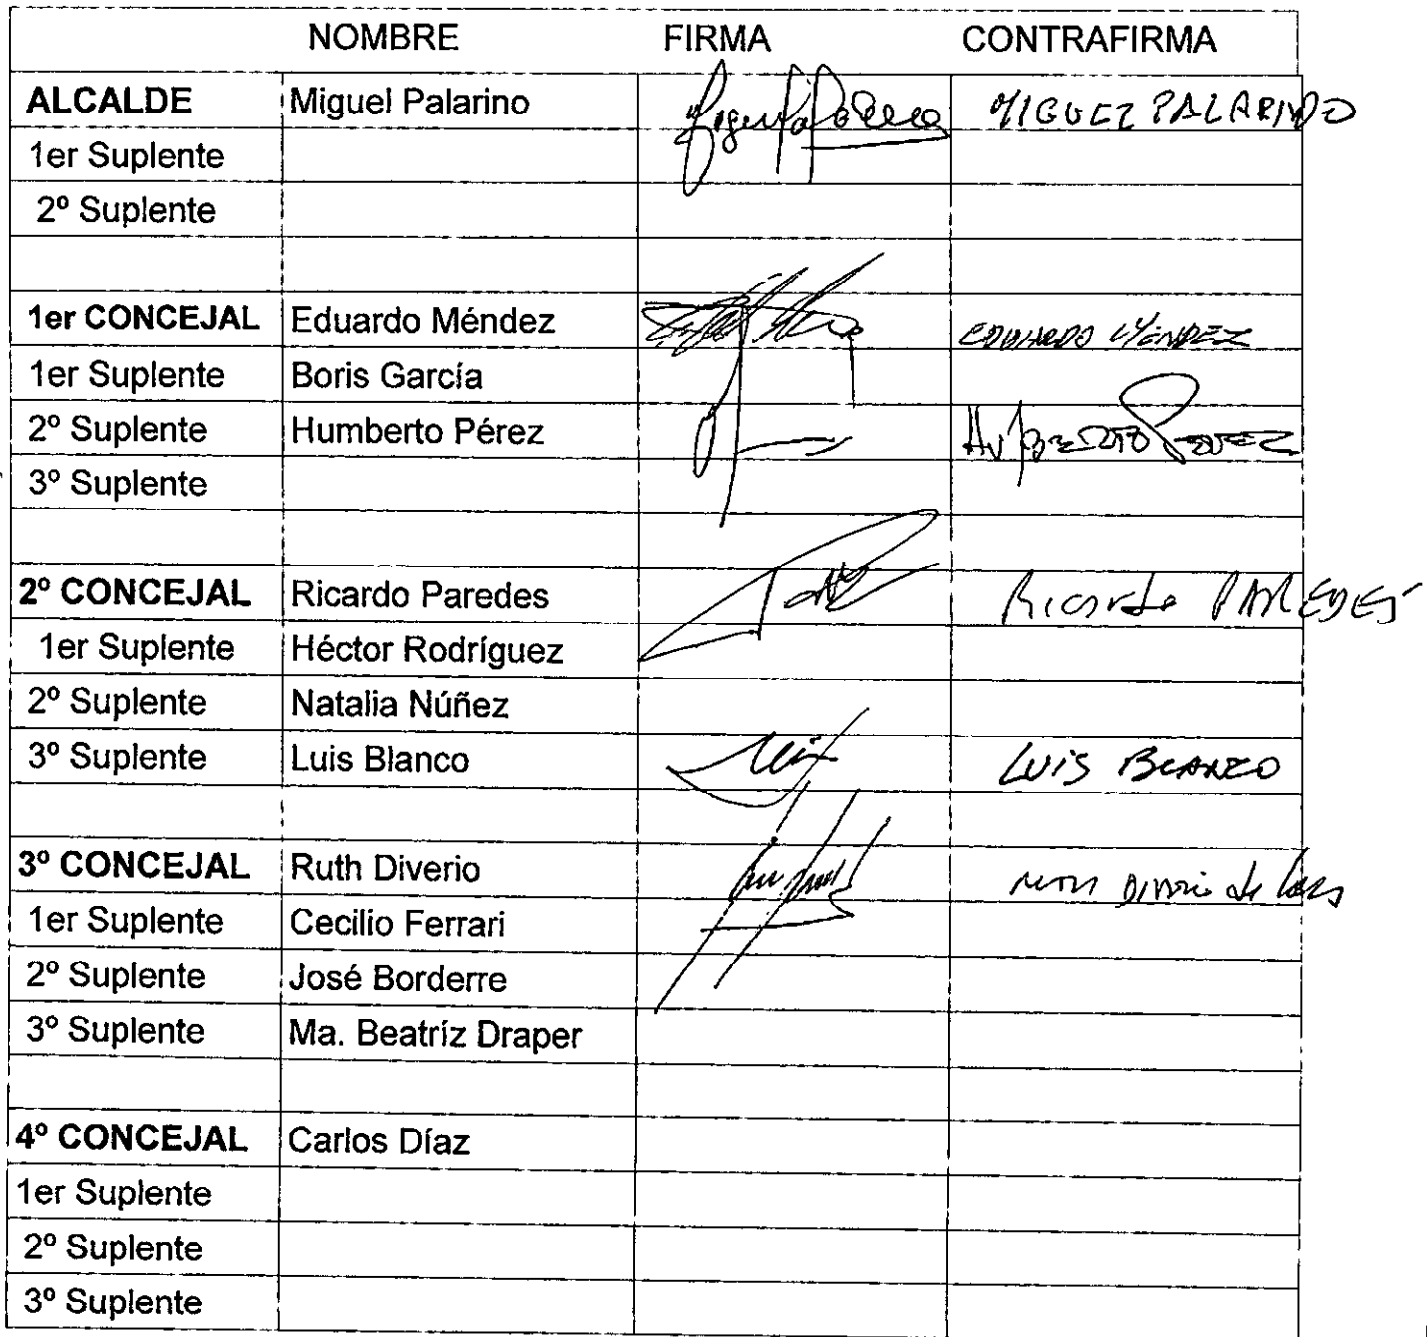 NOMBRE FIRMA CONTRAFIRMA
ALCALDE Miguel Palarino MIGUEL PALARINO
1er Suplente
2º Suplente
1er CONCEJAL Eduardo Méndez EDUARDO MÉNDEZ
1er Suplente Boris García
2º Suplente Humberto Pérez Humberto Perez
3º Suplente
2º CONCEJAL Ricardo Paredes Ricardo PAREDES
1er Suplente Héctor Rodríguez
2º Suplente Natalia Núñez
3º Suplente Luis Blanco LUIS BLANCO
3º CONCEJAL Ruth Diverio
1er Suplente Cecilio Ferrari
2º Suplente José Borderre
3º Suplente Ma. Beatríz Draper
4º CONCEJAL Carlos Díaz
1er Suplente
2º Suplente
3º Suplente